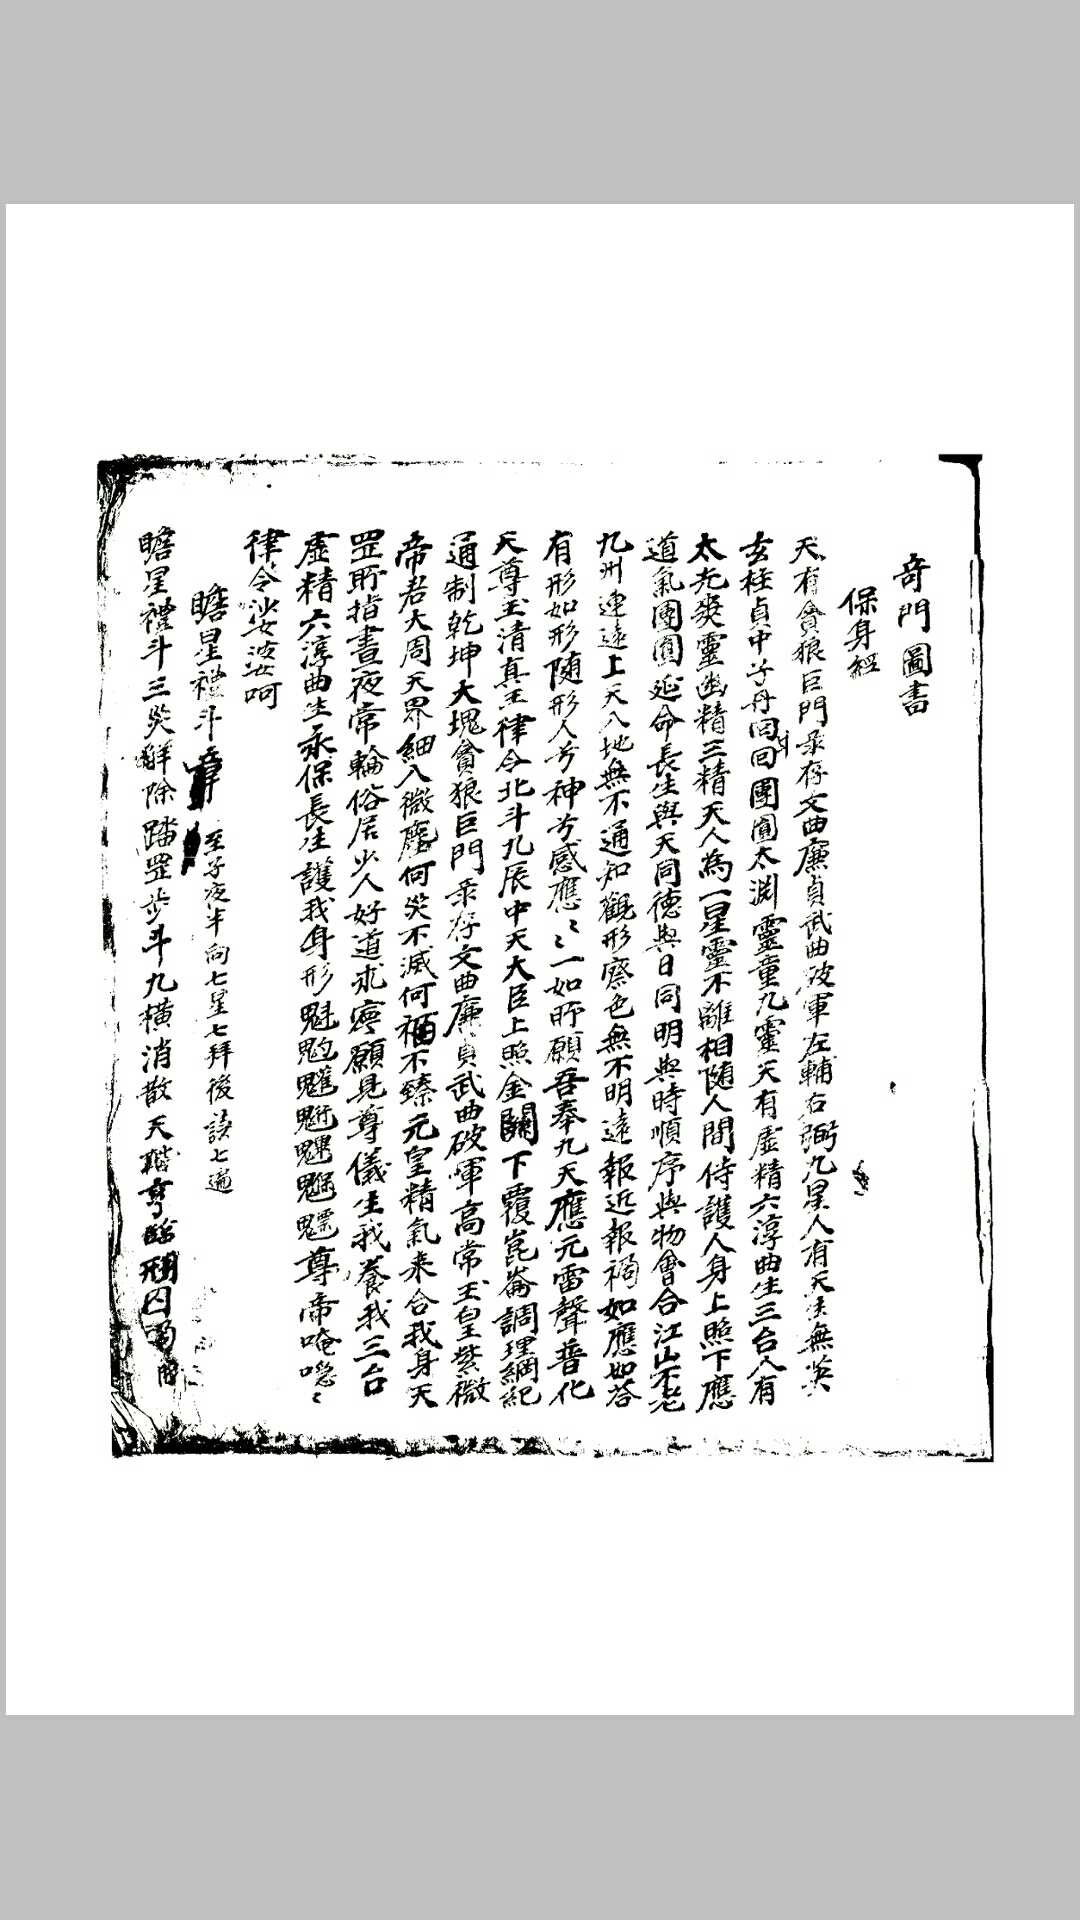 奇門圖書
保身經
天有貪狼巨門彔存文曲廉貞武曲破軍左輔右弼九星人有天生無英
玄柱貞中子丹回回團圓太淵靈童九靈天有虛精六淳曲生三台人有
太光爽靈幽精三精天人為一星靈不離相随人間侍護人身上照下應
道氣團圓延命長生與天同德與日同明與時順序與物會合江山不老
九州連遠上天入地無不通知觀形察色無不明達報近報禍如應如答
有形如形随形人兮神兮感應〻〻一如所願吾奉九天應元雷聲普化
天尊玉清真王律令北斗九辰中天大臣上照金闕下覆崑崙調理綱紀
通制乾坤大塊貪狼巨門彔存文曲廉貞武曲破軍高常玉皇紫微
帝君大周天界細入微塵何災不滅何福不臻元皇精氣来合我身天
罡所指晝夜常輪俗居少人好道求靈願見尊儀生我養我三台
虛精六淳曲生永保長生護我身形魁𩲃䰢魓魒尊帝唵㘕〻
律令沙婆訶
瞻星禮斗章 至子夜半向七星七拜後読七遍
瞻星禮斗三災解除踏罡步斗九橫消散天